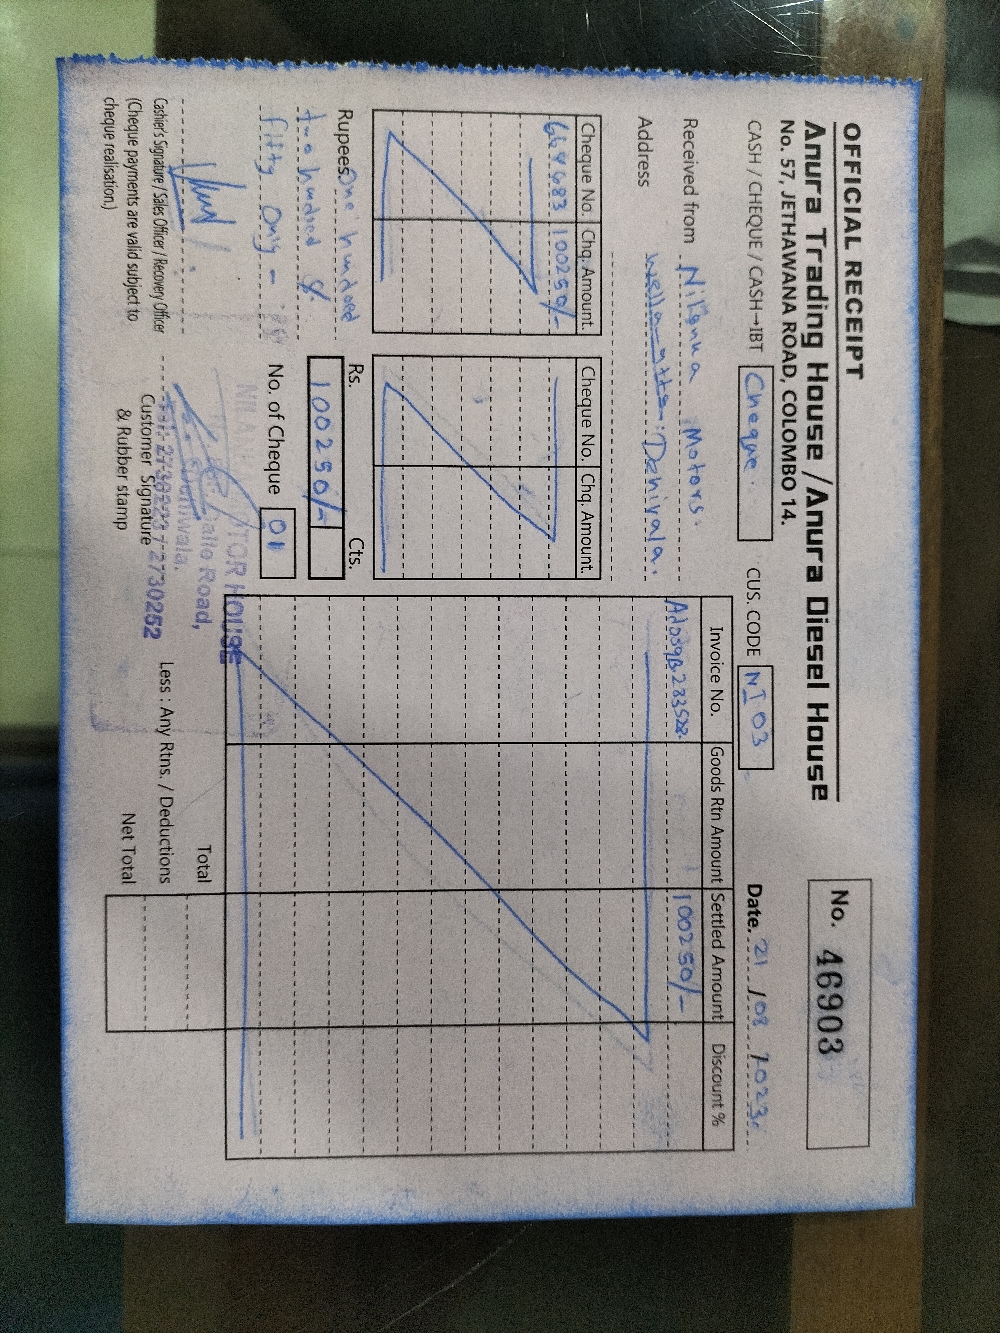 OFFICIAL RECEIPT
No. 46903
Anura Trading House / Anura Diesel House
No. 57, JETHAWANA ROAD, COLOMBO 14.
CASH / CHEQUE / CASH→IBT Cheque. CUS. CODE NI 03 Date. 21 / 08 / 2023.
Received from Motors.
Address
Invoice No. Goods Rtn Amount Settled Amount Discount %
100250/-
Cheque No. Chq. Amount. Cheque No. Chq. Amount.
100250/-
Rupees One hundred
two hundred &
fifty only -
Rs. Cts.
100250/-
No. of Cheque 01
TOR HOUSE
Road,
2730223 / 2730252
Cashier's Signature / Sales Officer / Recovery Officer
(Cheque payments are valid subject to
cheque realisation.)
Customer Signature
& Rubber stamp
Total
Less : Any Rtns. / Deductions
Net Total